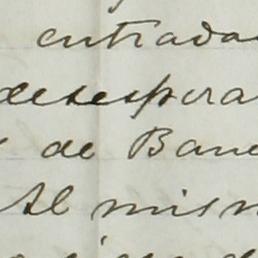 entrada
desespera
de Banc
Al mism